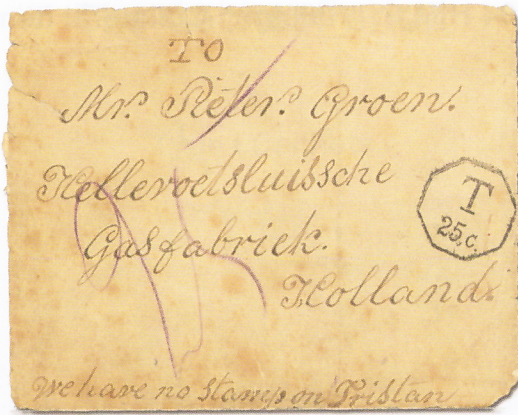 To
Mr. Pieter. Groen.
Hellevoetsluissche
Gasfabriek.
Holland.
T
25.c.
we have no stamp on Tristan